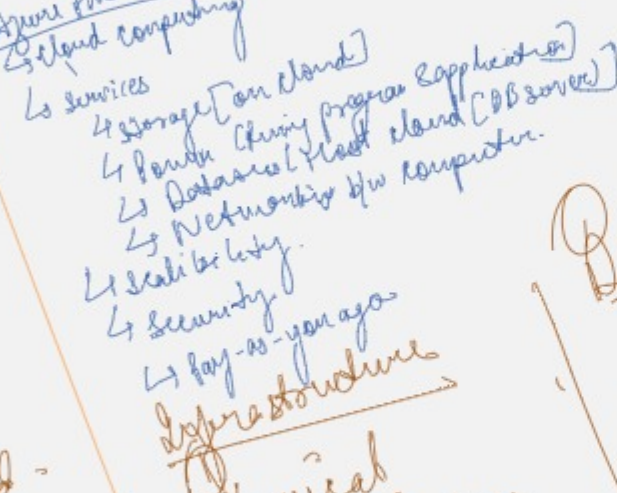 Azure
↳ cloud computing
↳ services
↳ storage [on cloud]
↳ Power (Runing program & application)
↳ Database [Host cloud (DB server)]
↳ Networking b/w computer.
↳ scalibility.
↳ Security
↳ Pay-as-you-go
Infrastructure